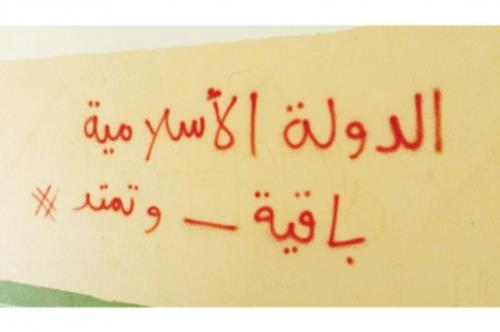 الدولة الأسلامية
باقية – وتمتد #